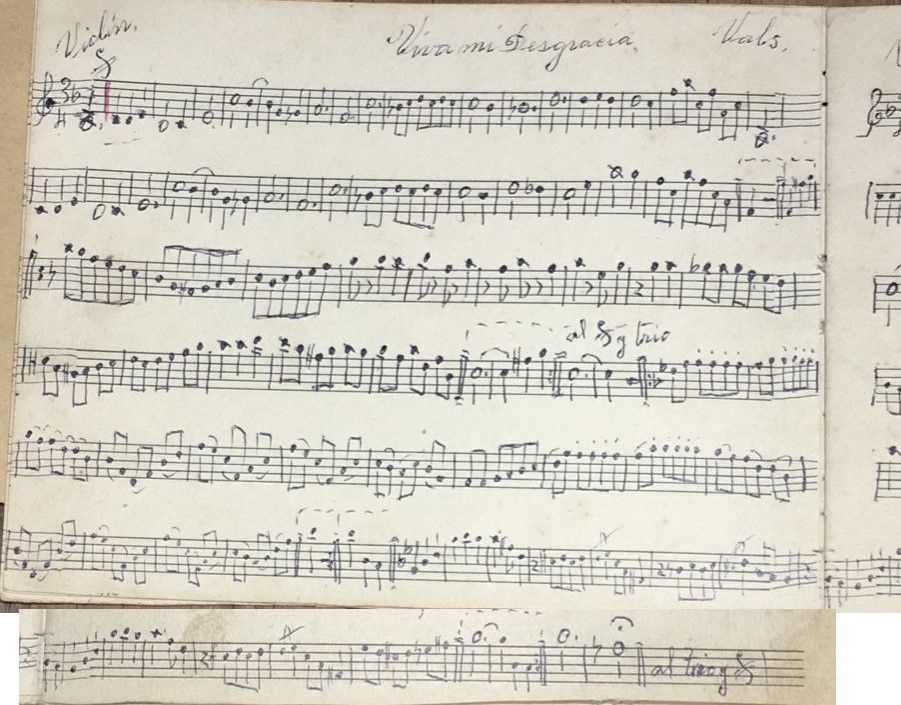 Violin. Viva mi Desgracia. Vals.
al 𝄋 y trio
al Trio y 𝄋